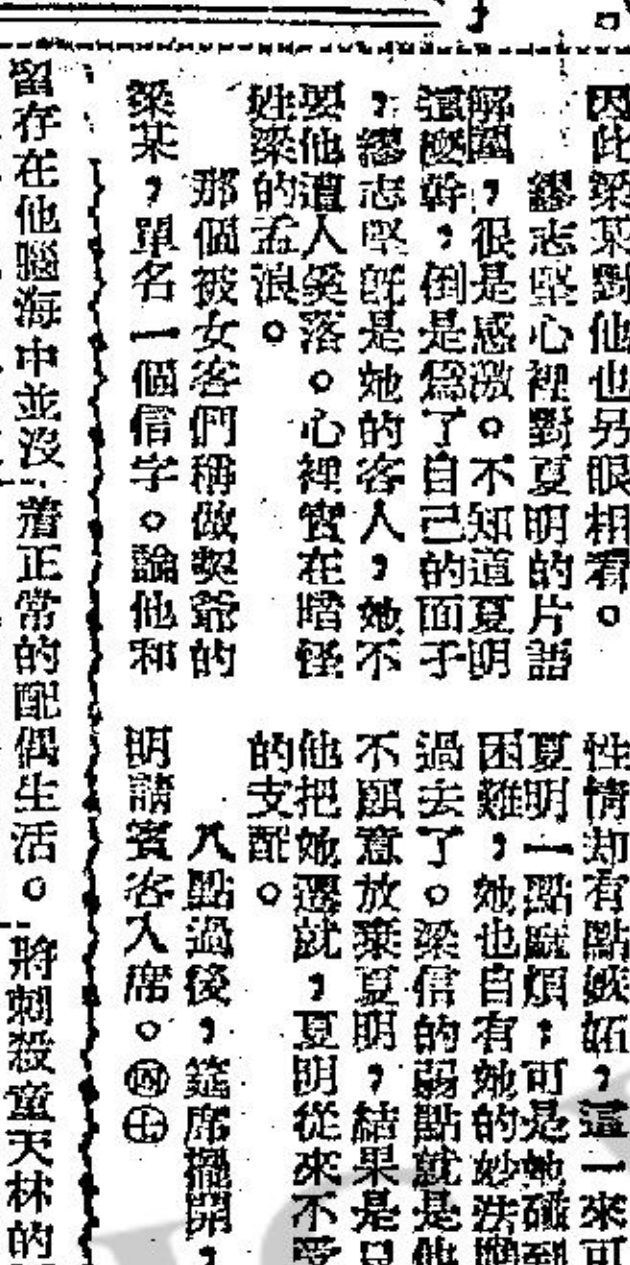 因此梁某對他也另眼相看。
繆志堅心裡對夏明的片語
解圍，很是感激。不知道夏明
這麽幹，倒是爲了自己的面子
，繆志堅旣是她的客人，她不
要他遭人奚落。心裡實在暗怪
姓梁的孟浪。
那個被女客們稱做契爺的
梁某，單名一個信字。論他和
性情却有點嫉妬，這一來可
夏明一點麻煩；可是她碰到
困難，她也自有她的妙法應
過去了。梁信的弱點就是他
不願意放棄夏明，結果是只
他把她遷就，夏明從來不受
的支配。
八點過後，筵席擺開，
明請賓客入席。
留存在他腦海中並沒
着正常的配偶生活。
將刺殺童天林的